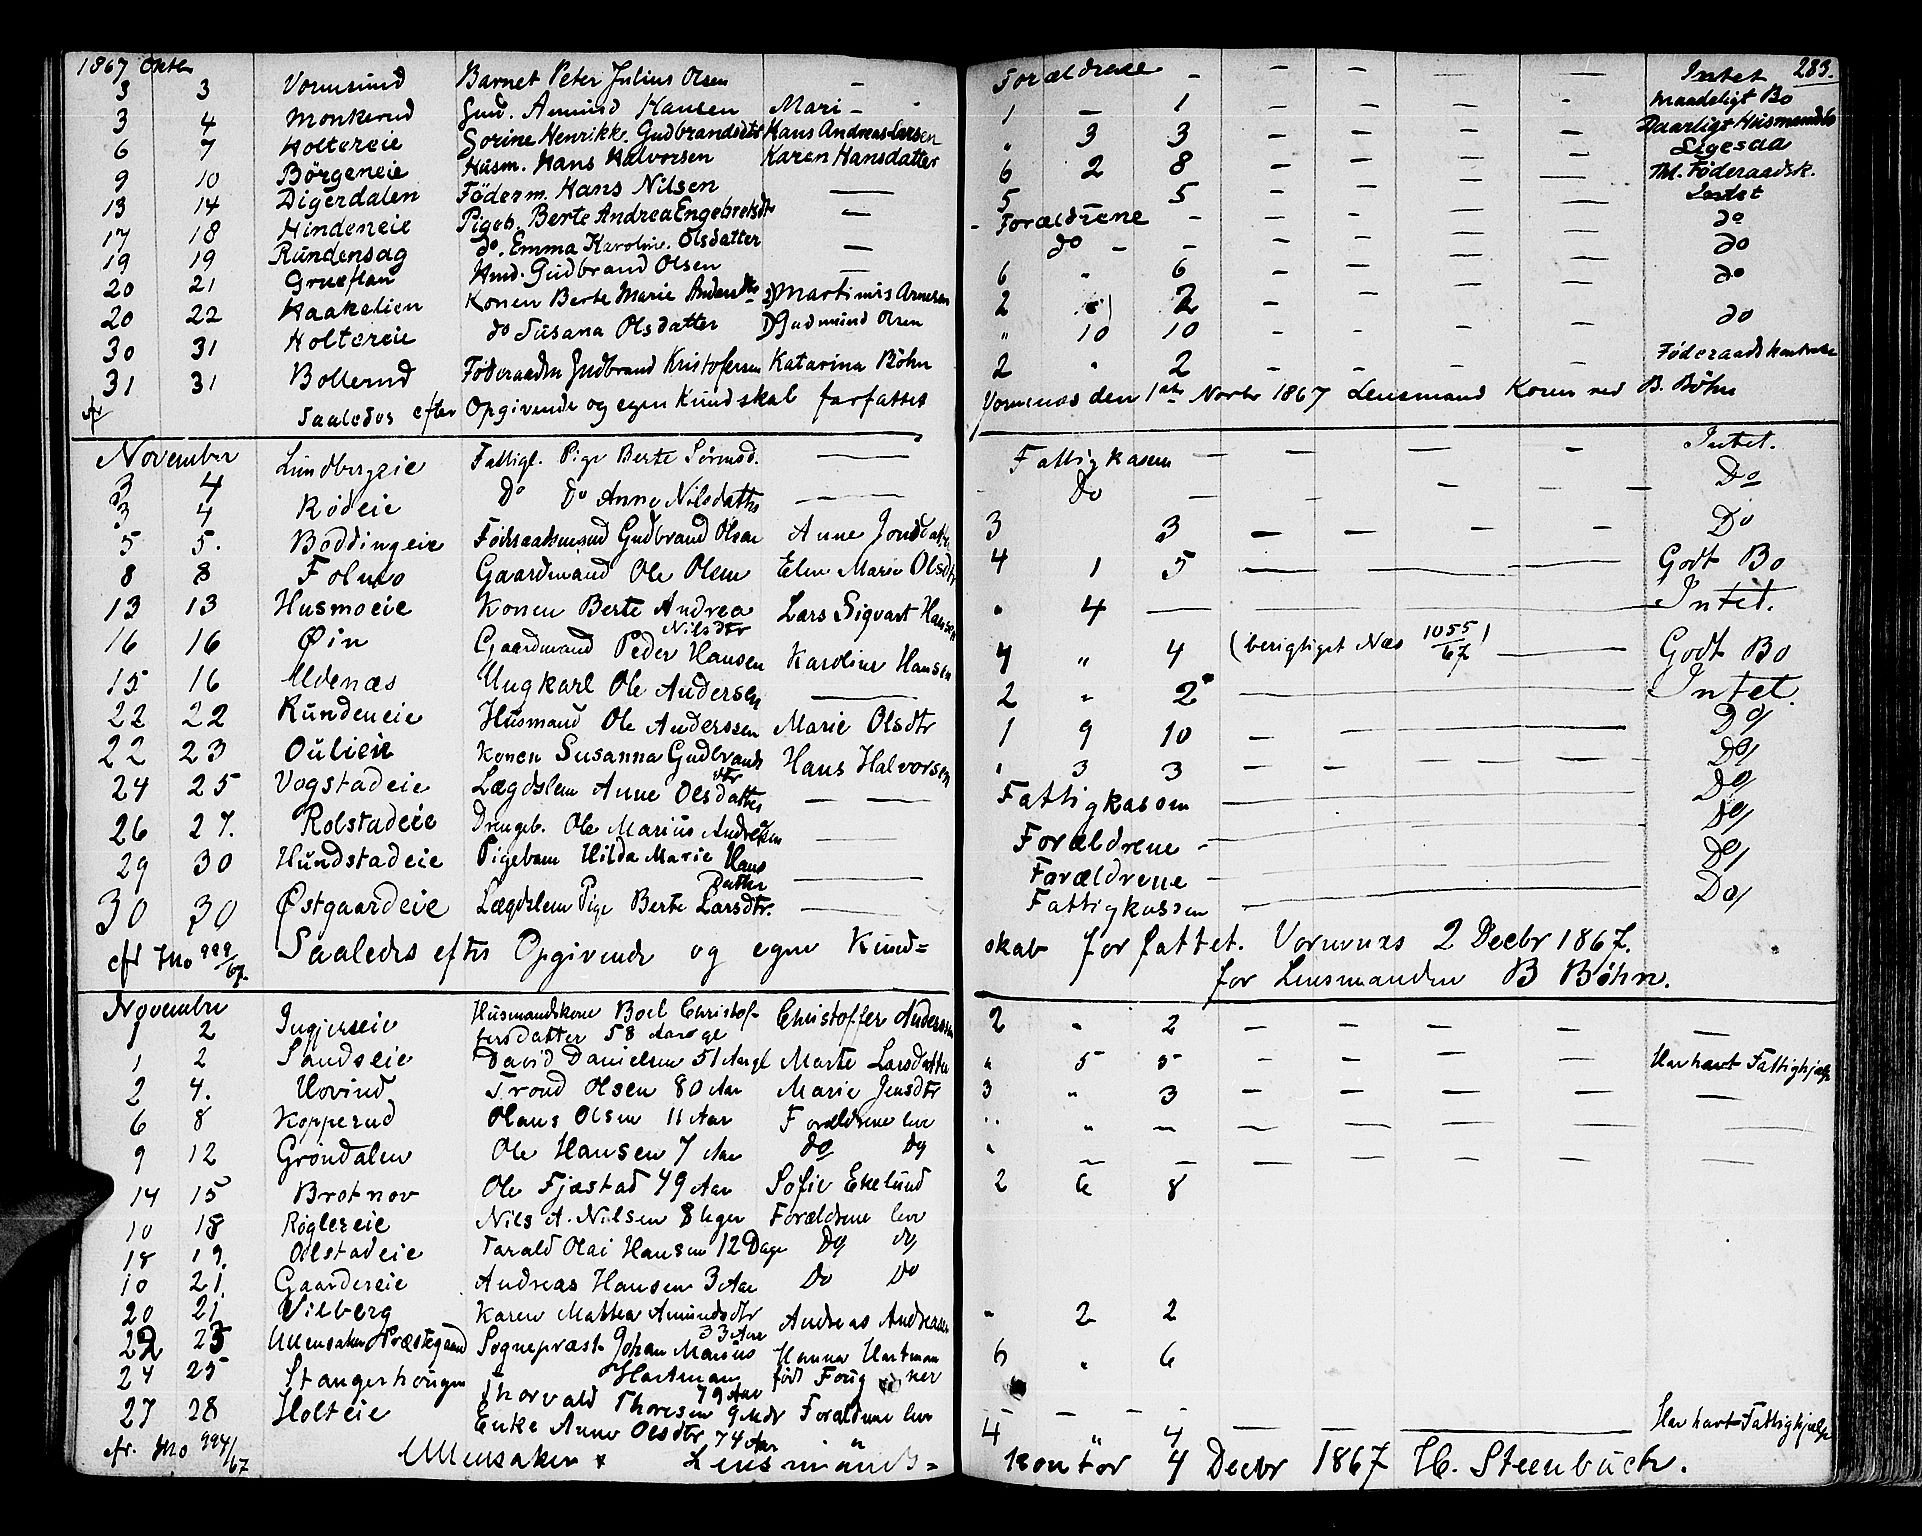 1867 Oktbr 283.
3 3 Vormsund Barnet Peter Julius Olsen — Forældrene — — — — — — Intet
3 4 Monkerud Gmd. Amund Hansen Mari — 1 — 1 — — — — - Maadeligt Bo
6 7 Holtereie Sorine Henrikke Gudbrandsdtr Hans Andreas Larsen " 3 3 — — — — — Daarligt Husmandsbo
9 10 Börgeneie Husm. Hans Halvorsen Karen Hansdatter 6 2 8 — — — — — Ligesaa
13 14 Digerdalen Föderm. Hans Nilsen — 5 — 5 — — — — — Thl. Föderaadsk.
17 18 Hindeneie Pigeb. Berte Andrea Engebretsdtr — Forældrene — — — — — — Intet
19 19 Rundensag do. Emma Karolin. Olsdatter — do — — — — — — — do
20 21 Hmd. Gudbrand Olsen — 6 " 6 — — — — — do
20 22 Haakalien Konen Berte Marie Martinus Arnesen 2 2 — — — — — do
30 31 Holtereie do Susana Olsdatter Gudmund Olsen " 10 10 — — — — — do
31 31 Bollerud Föderaadm Gudbrand Kristofersen Katarina Böhn 2 " 2 — — — — — Föderaadskontrakt
Saaledes efter Opgivende og egen Kundskab forfattet Vormnæs den 1ste Novbr 1867 Lensmand Koren ved B. Böhn
November
3 4 Lundbergeie Fattigl. Pige Berte — Fattigkasen — — — — — Intet.
3 4 Rödeie Do Do Anne Nilsdatter — — Do — — — — — Do
5 5. Boddingeie Föderaadsmand Gudbrand Olsen Anne Jonsdatter 3 3 — — — — — Do
8 8 Folmo Gaardmand Ole Olsen Elen Marie Olsdtr 4 1 5 — — — — Godt Bo
13 13 Husmoeie Konen Berte Andrea Nilsdtr Lars Sigvart Hansen " 4 — — Intet.
16 16 Øin Gaardmand Peder Hansen Karoline Hansen 4 " 4 (berigtiget Næs 1055/67) — Godt Bo
15 16 Uldenæs Ungkarl Ole Andersen — 2 " 2 — Intet.
22 22 Rundeneie Husmand Ole Anderssen Marie Olsdtr 1 9 10 — — Do
22 23 Oulien Konen Susanna Gudbrandsdtr Hans Halvorsen " 3 3 — — — Do
24 25 Vogstadeie Lægdslem Anne Olsdatter — — Fattigkassen — Do
26 27. Rolstadeie Drengeb. Ole Marius Andresen — Forældrene — Do
29 30 Hundstadeie Pigebarn Hilda Marie Hans Datter — Forældrene — Do
30 30 Østgaardeie Lægdslem Pige Berte Larsdtr. — Fattigkassen — Do
cfr Jno 999/67. Saaledes efter Opgivende og egen Kund= skab forfattet. Vormnæs 2 Decbr 1867.
for Lensmanden B Böhn.
November
1 2 Ingjerseie Husmandskone Boel Christof- Christoffer Andersen 2 " 2 — — — — — —
fersdatter 58 Aar gl
1 2 Sandseie David Danielsen 51 Aar gl Marte Larsdatter " 5 5 — — — — — Har havt Fattighjælp
2 4. Hovind Trond Olsen 80 Aar Marie Jensdtr 3 " 3 — — — — — —
6 8 Kopperud Olaus Olsen 11 Aar Forældrene leve " " — — — — — — —
9 12 Gröndalen Ole Hansen 7 Aar Do Do " — — — — — — — —
14 15 Brotnov Ole Fjæstad 49 Aar Sofie Ekelund 2 6 8
10 18 Röglereie Nils A. Nilsen 8 Uger Forældrene leve
18 19. Olstadeie Tarald Olai Hansen 12 Dage Do Do
10 21. Gaardereie Andreas Hansen 3 Aar Do Do
20 21. Vilberg Karen Mathea Amundsdtr Andreas Andreasen " 2 2
33 Aar
22 23 Ullensaker Præstegaard Sognepræst Johan Marius Hanna Hartman 6 " 6
Hartman født Foug ner
79 Aar
24 25 Stangerhougen Thorvald Thoresen 9 Mdr Forældrene leve — — — —
27 28 Holteie Enke Anne Olsdtr 74 Aar " 4 " 4 — — — Har havt Fattighjælp
cfr. Jno 994/67 Ullensaker Lensmands= kontor 4 Decbr 1867 H. Steenbuch.